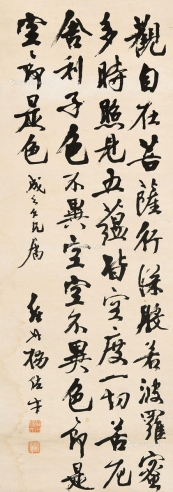 觀自在菩薩行深般若波羅蜜
多時照見五蘊皆空度一切苦厄
舍利子色不異空空不異色即是
空空即是色
成之仁兄屬